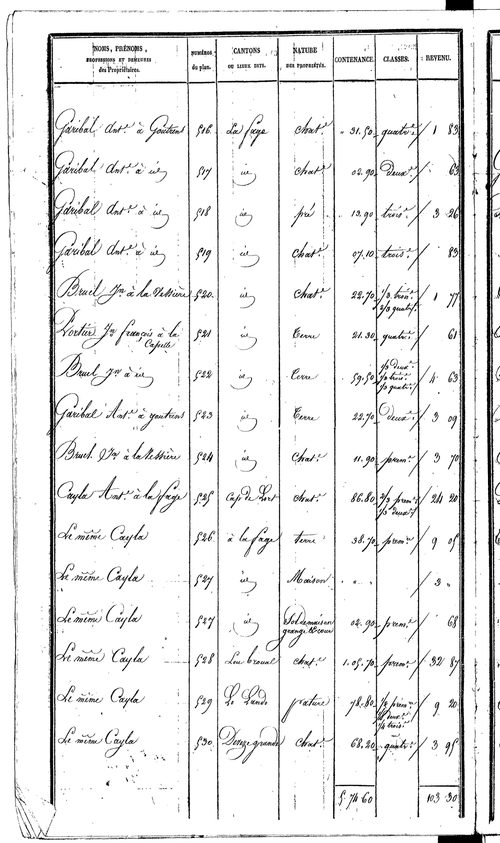 NOMS, PRÉNOMS, PROFESSIONS ET DEMEURES des Propriétaires. NUMÉROS du plan. CANTONS OU LIEUX DITS. NATURE DES PROPRIÉTÉS. CONTENANCE. CLASSES. REVENU.
Garibal Ant.e à Goutrens 516. La fage chat.e " 31. 50 quatr.e 1 83
Garibal Ant.e à id 517 id chat.e 02. 90 deux.e " 63
Garibal Ant.e à id 518 id pré " 13. 90 trois.e 3 26
Garibal Ant.e à id 519 id Chat.e 07. 10 trois.e 83
Bruel Jn à la Vessière 520. id Chat.e 22. 70 1/3 trois.e 1 77
2/3 quatr.e
Jn françois à la 521 id Terre 21. 30 quatr.e 61
Capelle
Bruel Jn à id 522 id Terre 59. 50 1/3 deux.e 4 63
1/3 trois.e
1/3 quatr.e
Garibal Ant.e à goutrens 523 id Terre 22. 70 Deux.e 3 09
Bruel Jn à la Vessière 524 id Chat.e 11. 90 prem.e 3 70
Cayla Ant.e à la fage 525 Cap de Lort chat.e 86. 80 2/3 prem.e 24 20
1/3 deux.e
Le même Cayla 526 à la fage terre 38. 70 prem.e 9 05
Le même Cayla 527 id Maison " " 3 "
Le même Cayla 527 id Sol de maison 02. 90 prem.e 68
grange & cour
Le même Cayla 528 Lou broual chat.e 1. 05. 70 prem.e 32 87
Le même Cayla 529 La Lande pature 78. 80 1/3 prem.e 9 20
deux.e
trois.e
Le même Cayla 530 grande Chat.e 68. 20 quatr.e 3 95
5 74 60 103 30